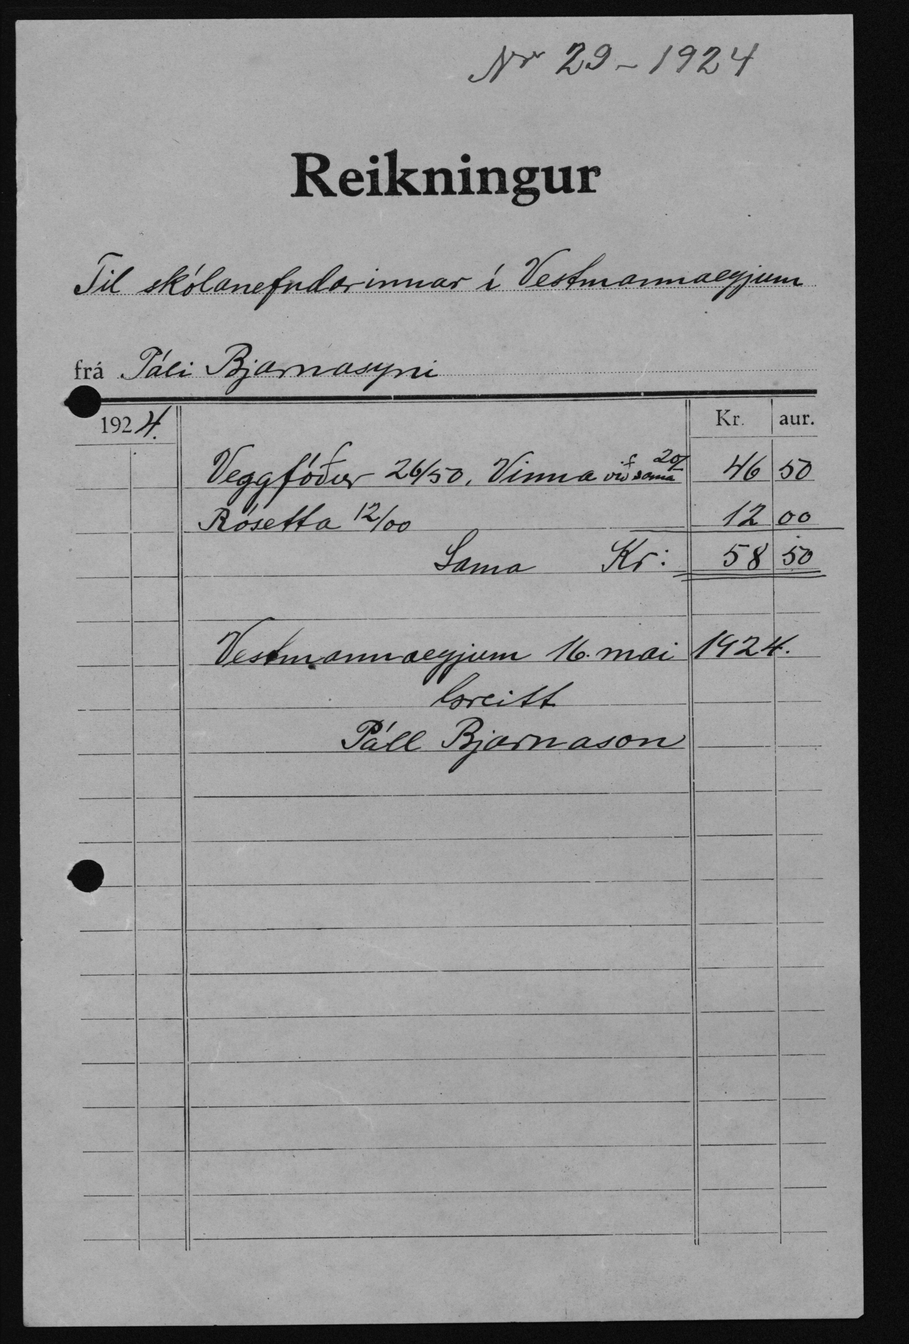 Nr 29 - 1924
Reikningur
Til skólanefndarinnar í Vestmannaeyjum
frá Páli Bjarnasyni
1924. Kr. aur.
Veggfóður 26/50, Vinna við sama 20/– 46 50
Rósetta 12/00 12 00
Sama Kr: 58 50
Vestmannaeyjum 16. mai 1924.
Greitt
Páll Bjarnason